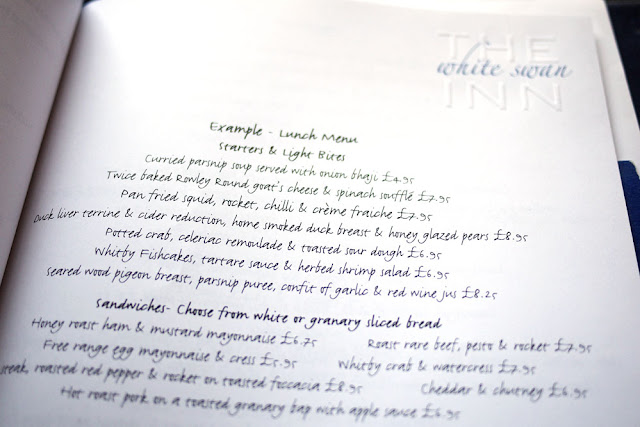 THE
white swan
INN
Example - Lunch Menu
Starters & Light Bites
Curried parsnip soup served with onion bhaji £4.95
Twice baked Rowley Round goat's cheese & spinach soufflé £7.95
Pan fried squid, rocket, chilli & crème fraiche £7.95
Duck liver terrine & cider reduction, home smoked duck breast & honey glazed pears £8.95
Potted crab, celeriac remoulade & toasted sour dough £6.95
Whitby Fishcakes, tartare sauce & herbed shrimp salad £6.95
Seared wood pigeon breast, parsnip puree, confit of garlic & red wine jus £8.25
Sandwiches- Choose from white or granary sliced bread
Honey roast ham & mustard mayonnaise £6.75 Roast rare beef, pesto & rocket £7.95
Free range egg mayonnaise & cress £5.95 Whitby crab & watercress £7.95
steak, roasted red pepper & rocket on toasted foccacia £8.95 Cheddar & chutney £6.95
Hot roast pork on a toasted granary bap with apple sauce £6.95